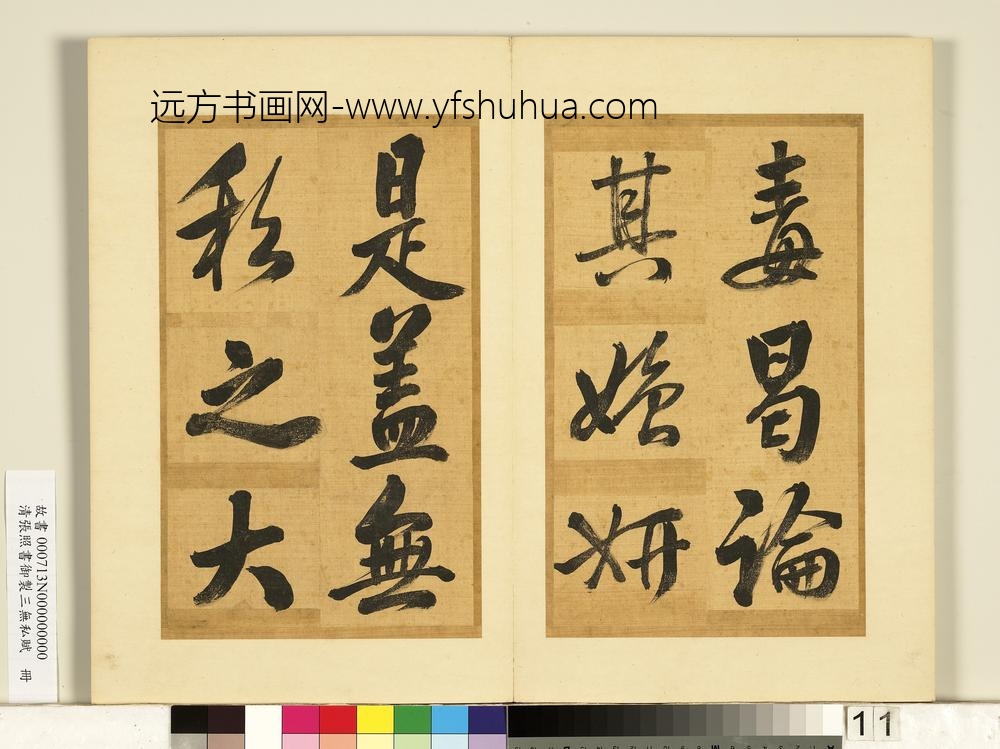 远方书画网-www.yfshuhua.com
毒曷論
其媸妍
是蓋無
私之大
故書 000713N000000000
清張照書御製三無私賦 冊
11